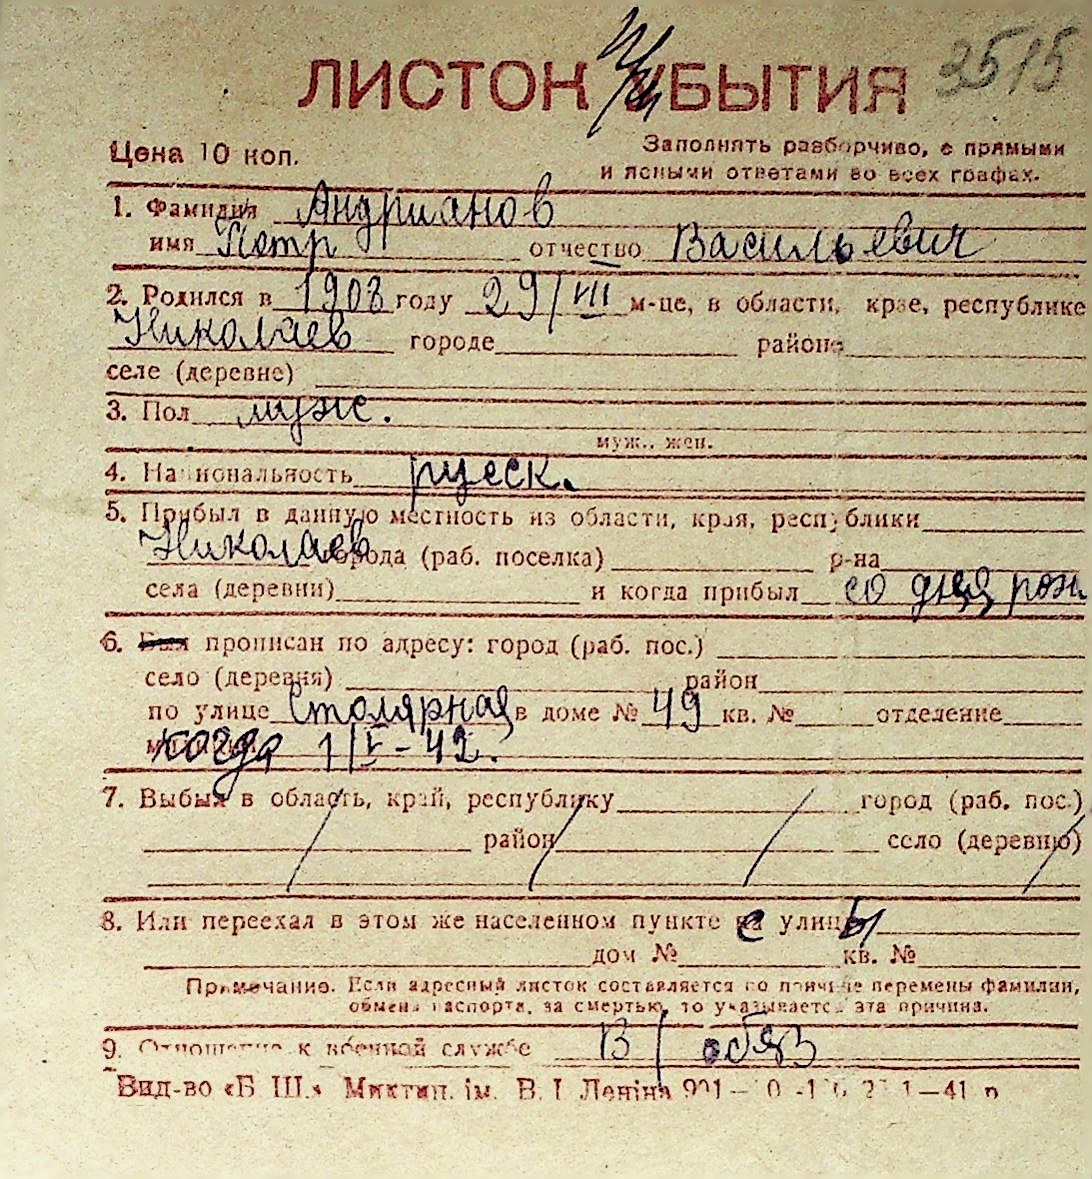 ЛИСТОК УБЫТИЯ 2515
Цена 10 коп.
Заполнять разборчиво, с прямыми
и ясными ответами во всех графах.
1. Фамилия Андрианов
имя Петр отчество Васильевич
2. Родился в 1908 году 29/VIII м-це, в области, крае, республике
Николаев городе районе
селе (деревне)
3. Пол муж.
муж., жен.
4. Национальность русск.
5. Прибыл в данную местность из области, края, республики
Николаев города (раб. поселка) р-на
села (деревни) и когда прибыл со дня рож
6. Был прописан по адресу: город (раб. пос.)
село (деревня) район
по улице Столярная в доме № 49 кв. № отделение
когда 1/V-42.
7. Выбыл в область, край, республику город (раб. пос.)
район село (деревню)
8. Или переехал в этом же населенном пункте с улицы
дом № кв. №
Примечание. Если адресный листок составляется по причине перемены фамилии,
обмена паспорта, за смертью, то указывается эта причина.
9. Отношение к военной службе В/обяз
Вид-во «Б Ш.» Миктип. ім. В. І Леніна